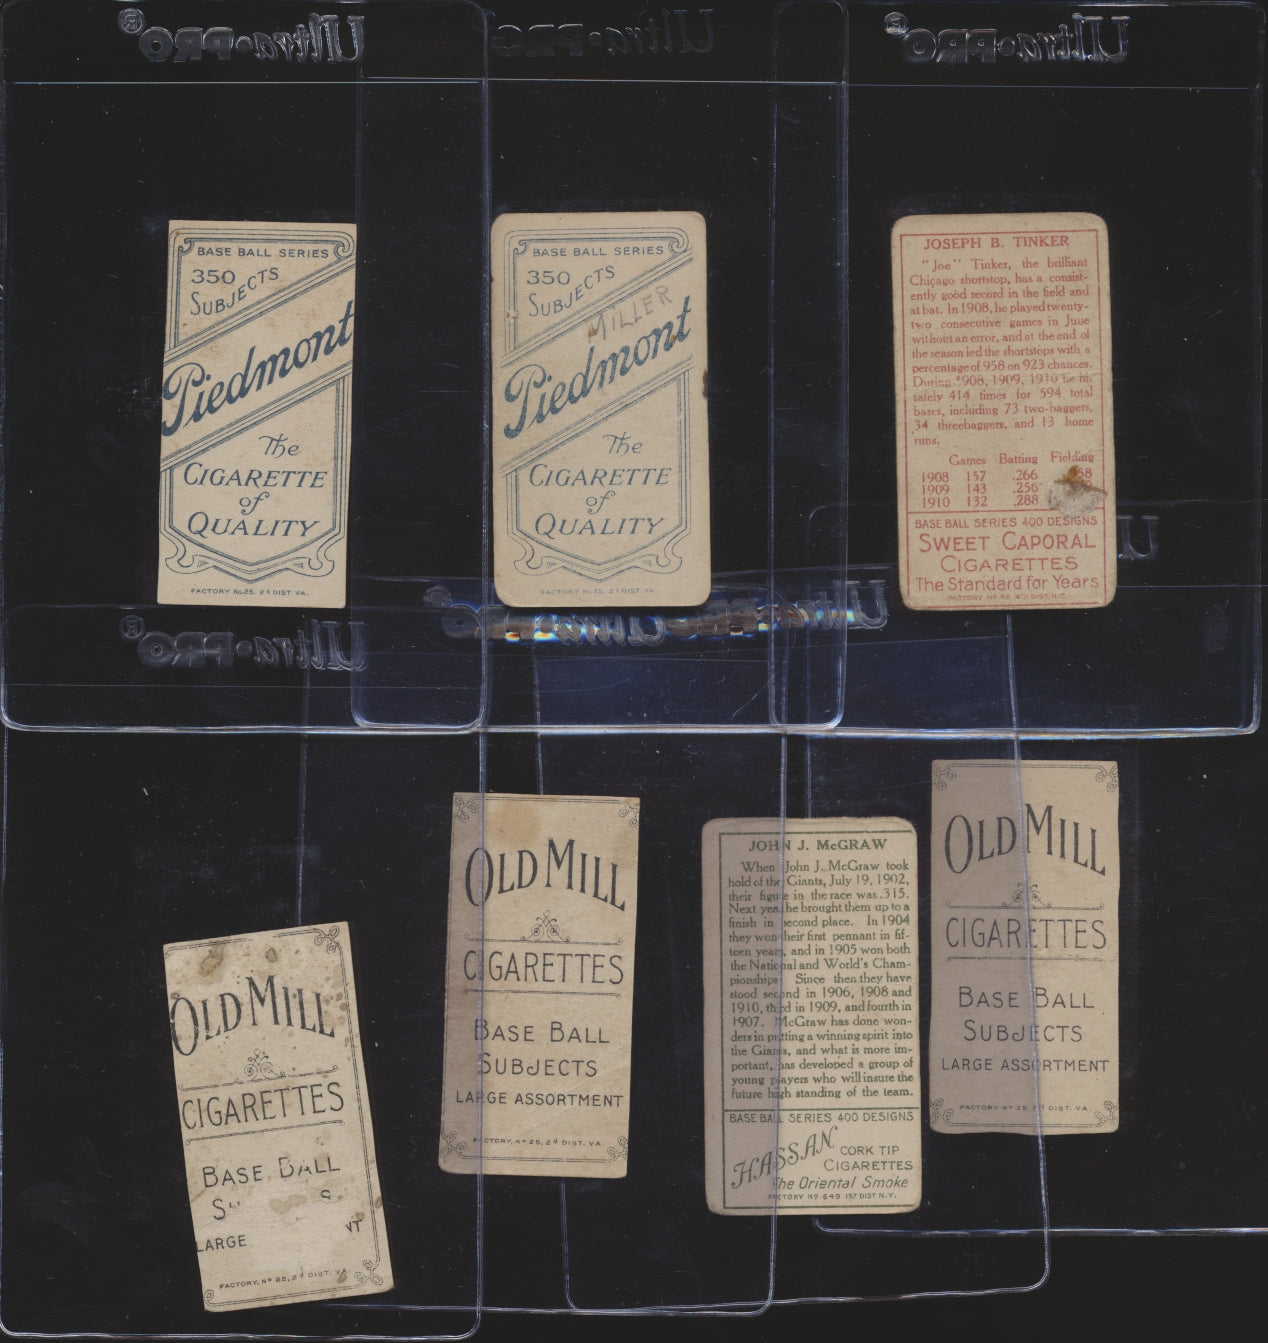 Ultra•PRO®
Ultra•PRO
Ultra•PRO®
BASE BALL SERIES
350
SUBJECTS
Piedmont
The
CIGARETTE
of
QUALITY
FACTORY No 25, 2d DIST. VA.
BASE BALL SERIES
350
SUBJECTS
MILLER
Piedmont
The
CIGARETTE
of
QUALITY
FACTORY No 25, 2d DIST. VA.
JOSEPH B. TINKER
"Joe" Tinker, the brilliant
Chicago shortstop, has a consist-
ently good record in the field and
at bat. In 1908, he played twenty-
two consecutive games in June
without an error, and at the end of
the season led the shortstops with a
percentage of 958 on 923 chances.
During 1908, 1909, 1910 he hit
safely 414 times for 594 total
bases, including 73 two-baggers,
34 threebaggers, and 13 home
runs.
Games Batting Fielding
1908 157 .266 58
1909 143 .256
1910 132 .288
BASE BALL SERIES 400 DESIGNS
SWEET CAPORAL
CIGARETTES
The Standard for Years
FACTORY No 42 4th DIST. N.C.
Ultra•PRO®
Ultra•PRO
OLD MILL
CIGARETTES
BASE BALL
SU S
LARGE NT
FACTORY, No 25, 2d DIST. VA.
OLD MILL
CIGARETTES
BASE BALL
SUBJECTS
LARGE ASSORTMENT
FACTORY, No 25, 2d DIST. VA
JOHN J. McGRAW
When John J. McGraw took
hold of the Giants, July 19, 1902,
their figure in the race was .315.
Next year he brought them up to a
finish in second place. In 1904
they won their first pennant in fif-
teen years, and in 1905 won both
the National and World's Cham-
pionships. Since then they have
stood second in 1906, 1908 and
1910, third in 1909, and fourth in
1907. McGraw has done won-
ders in putting a winning spirit into
the Giants, and what is more im-
portant, has developed a group of
young players who will insure the
future high standing of the team.
BASE BALL SERIES 400 DESIGNS
HASSAN
CORK TIP
CIGARETTES
The Oriental Smoke
FACTORY No 649 1st DIST. N.Y.
OLD MILL
CIGARETTES
BASE BALL
SUBJECTS
LARGE ASSORTMENT
FACTORY, No 25, 2d DIST. VA.